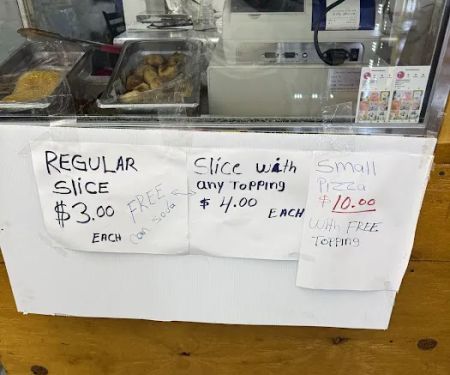 REGULAR
SLICE
$3.00
EACH
FREE
can soda
Slice with
any TOPPING
$ 4.00
EACH
Small
Pizza
$10.00
With FREE
TOPPING